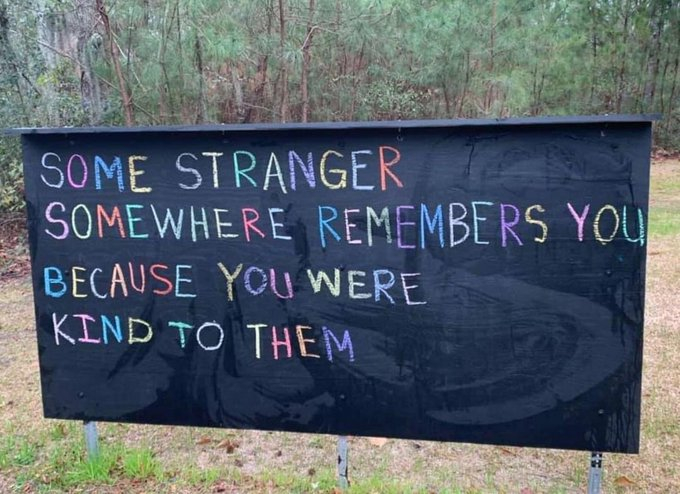 SOME STRANGER
SOMEWHERE REMEMBERS YOU
BECAUSE YOU WERE
KIND TO THEM